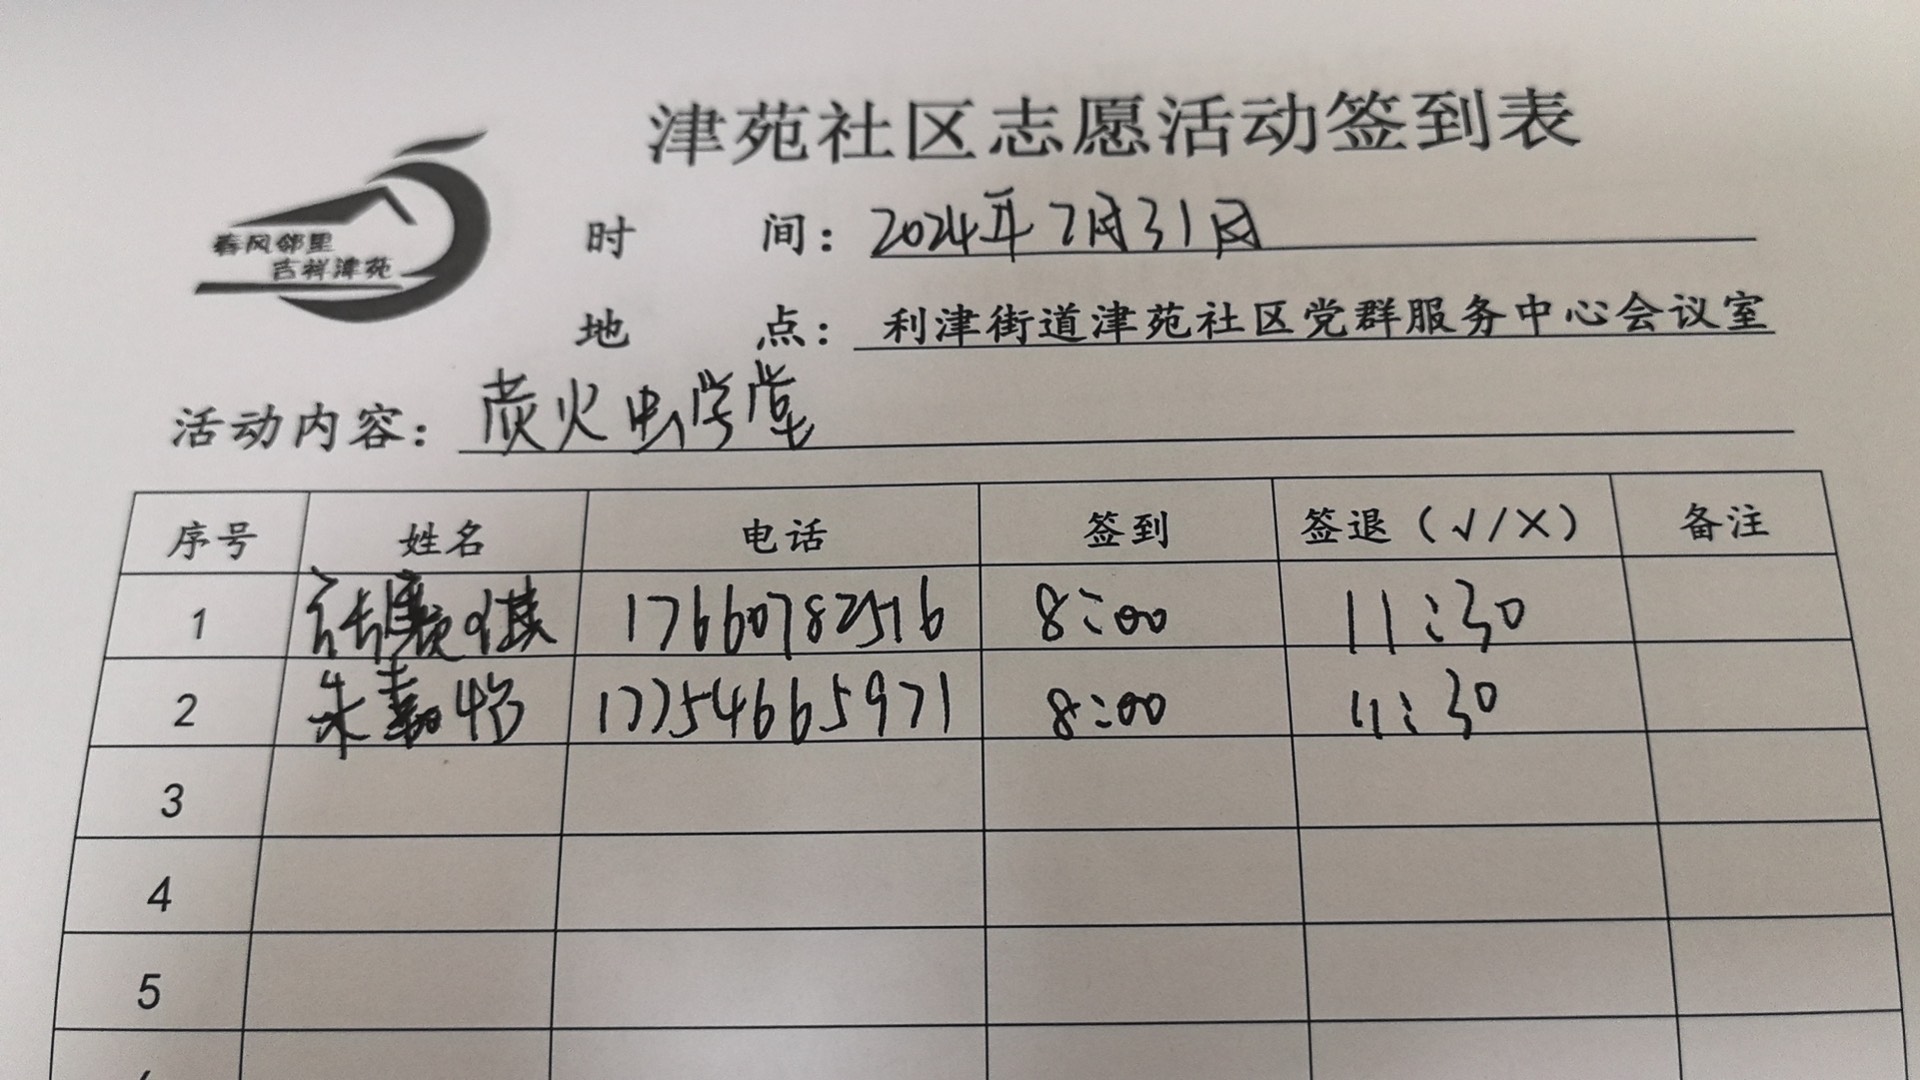 津苑社区志愿活动签到表
春风邻里
吉祥津苑
时 间：2024年7月31日
地 点：利津街道津苑社区党群服务中心会议室
活动内容：萤火虫学堂
序号 姓名 电话 签到 签退（√/×） 备注
1 17660782516 8:00 11:30
2 朱嘉 17754665971 8:00 11:30
3
4
5